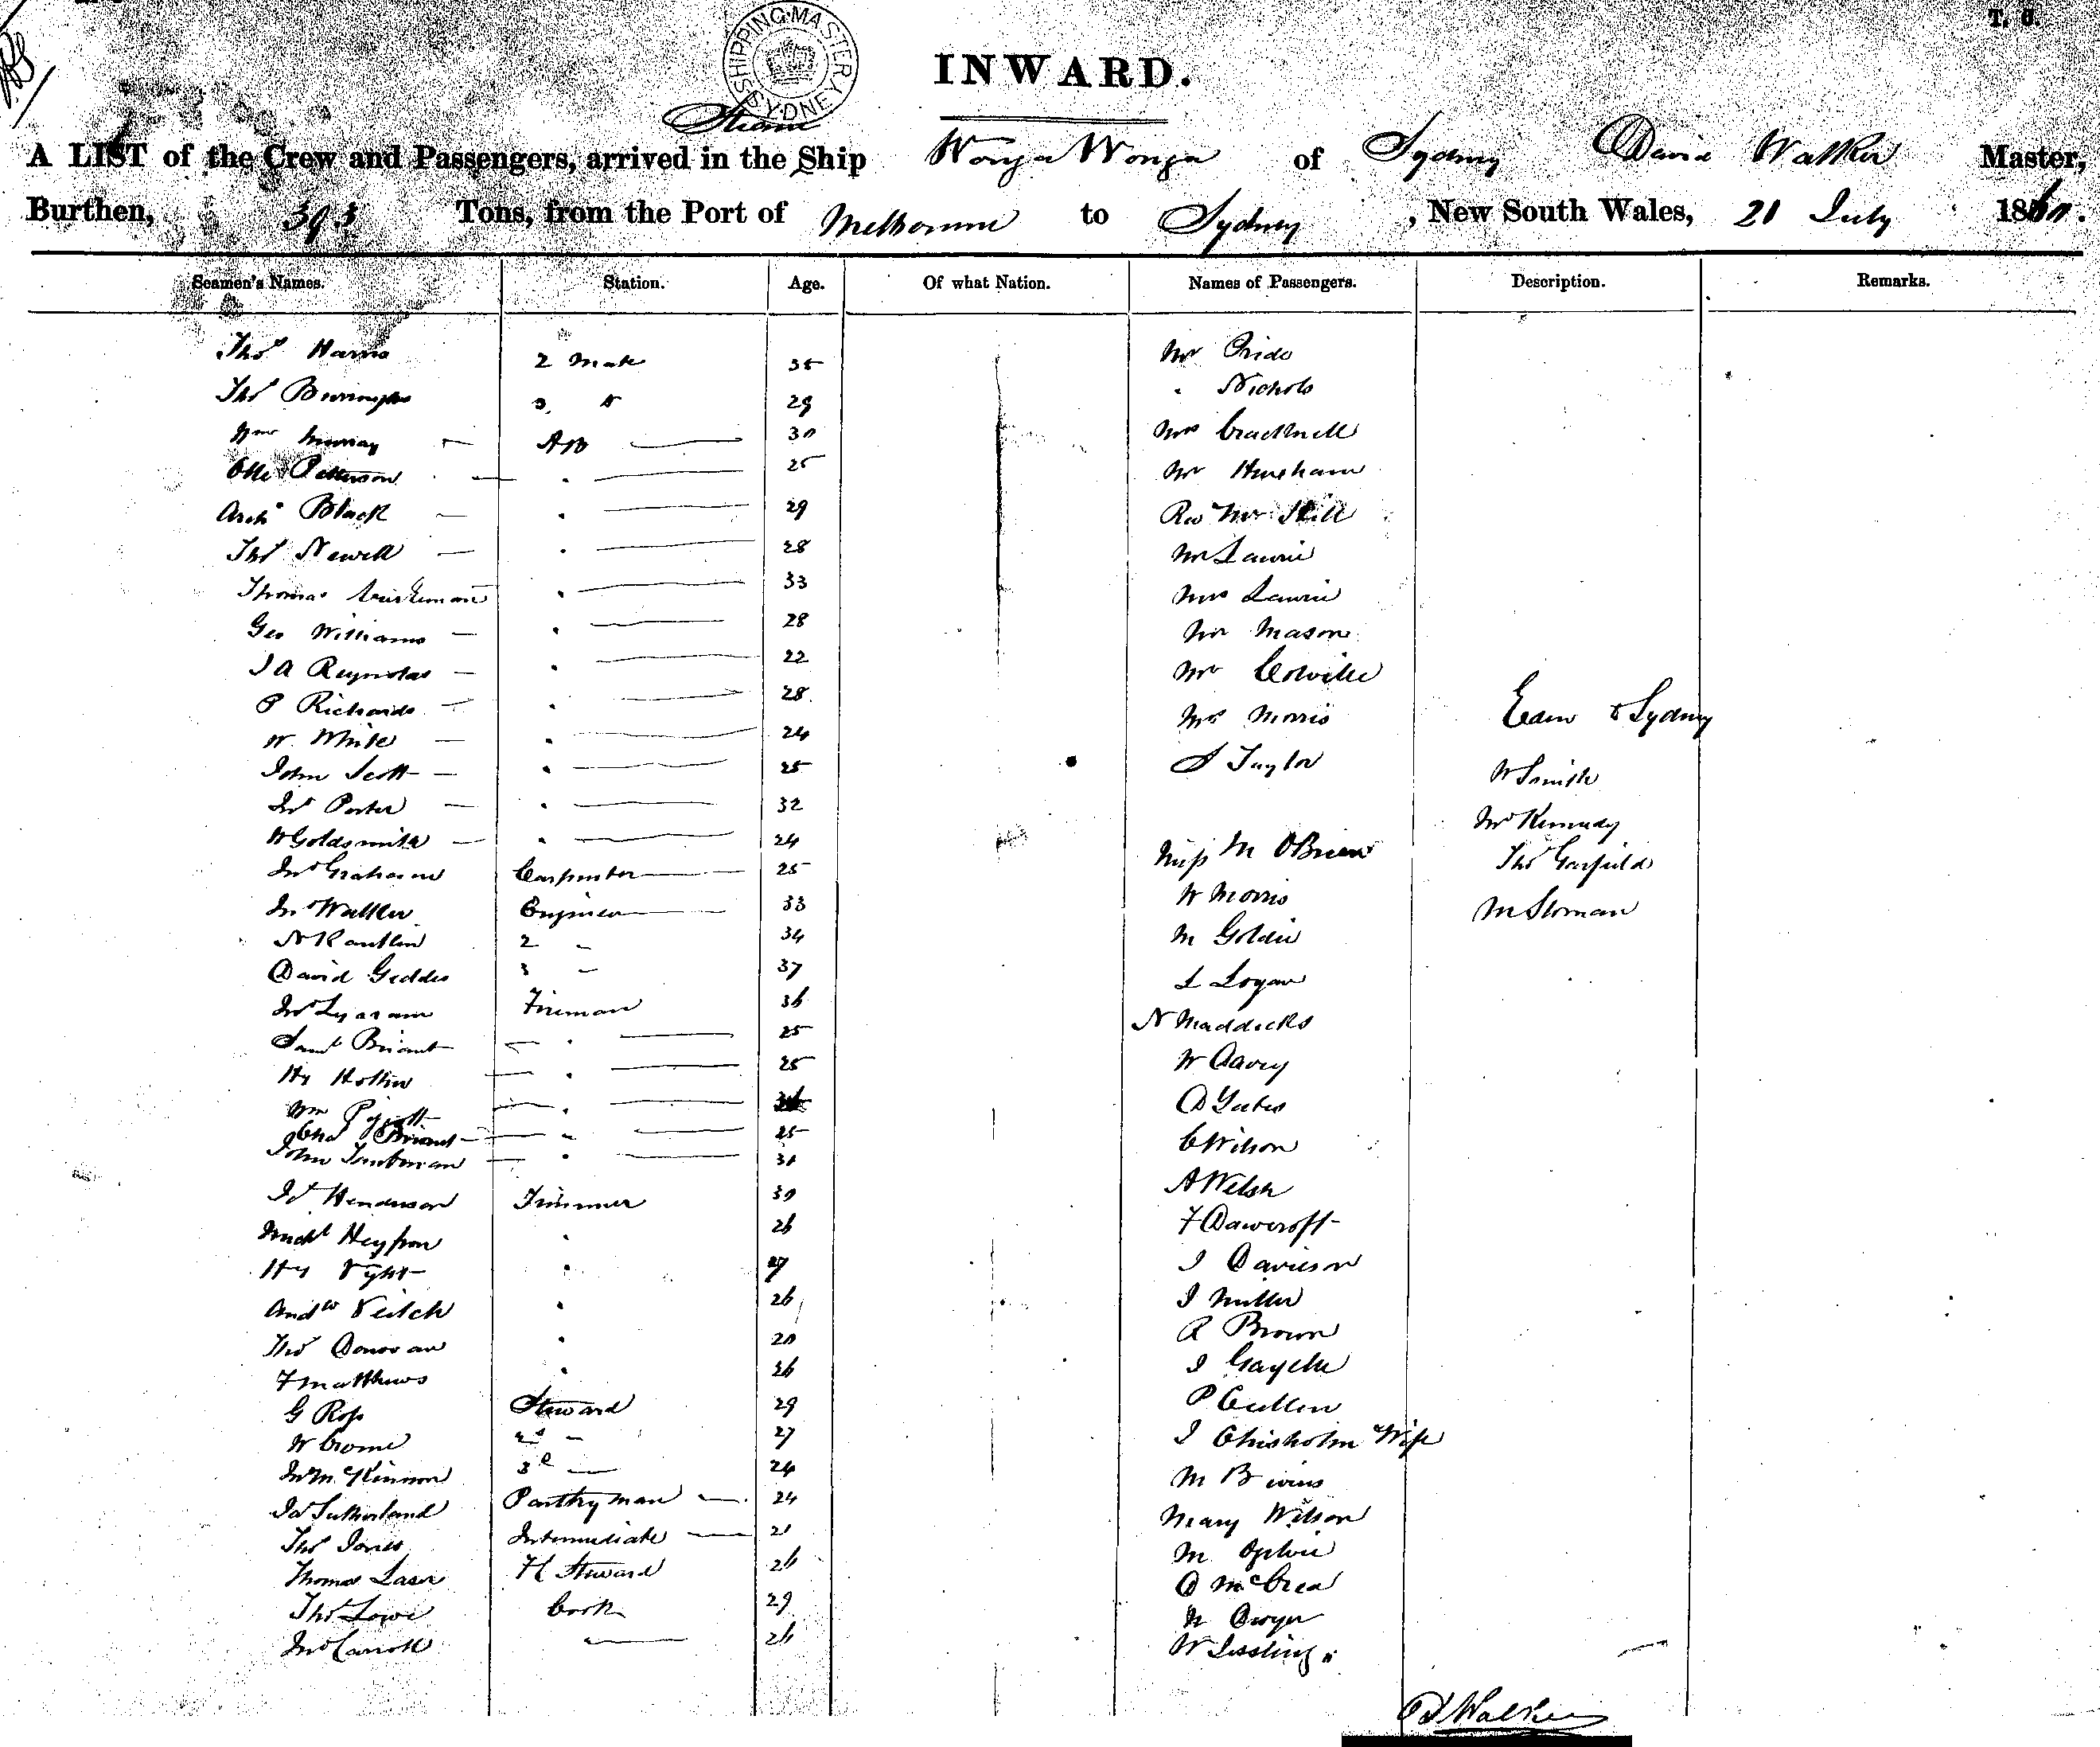 T. G.
SHIPPING MASTER SYDNEY
INWARD.
Steam
A LIST of the Crew and Passengers, arrived in the Ship Wonga Wonga of Sydney David Walker Master,
Burthen, 393 Tons, from the Port of Melbourne to Sydney, New South Wales, 21 July 1860.
Seamen's Names. Station. Age. Of what Nation. Names of Passengers. Description. Remarks.
Thos Harris 2 Mate 35 Mr Prido
Thos Burroughs 3. " 29 " Nichols
Wm Murray AB 30 Mrs Cracknell
Olle Petterson " 25 Mr Hinsham
Archd Black " 29 Revd Mr Hill
Thos Newell " 28 Mr Lawrie
Thomas " 33 Mrs Lawrie
Geo Williams " 28 Mr Mason
J A Reynolds " 22 Mr Colville
P Richards " 28 Mrs Morris Eden & Sydney
W. White " 24 S Taylor
John Scott " 25 W Smith
Jno Porter " 32 Mr Kennedy
W Goldsmith " 24 Miss M OBrien Thos Garfield
Jno Grahame Carpenter 25 W Morris
Jno Walker Engineer 33 M Sloman
N Rantlin 2 " 34 M Goldie
David Geddes 3 " 37 L Logan
Jno Fireman 36
Saml Briant " 25 N Maddicks
Hy " 25 W Davey
Wm Pigott " D Yates
Chas Briant " 25 C Wilson
John " 31
Jas Henderson Trimmer 30 A Welsh
Michl " 26 F Dawcroft
Hy " 27 J Davieson
Andw Veitch " 26 J Miller
Thos Donovan " 20 R Brown
F Matthews " 26 J
G Ross Steward 29 P Cullen
W Crome 2d " 27 J Chisholm Wife
Jno McKinnon 3d 24 M Bivins
Jas Sutherland Pantryman 24 Mary Wilson
Thos Davies Intermediate 21 M Ogilvie
Thomas Laser H Steward 26 D McCrea
Thos Lowe Cook 29 M Dwyer
Jno Carroll 26 W
D Walker